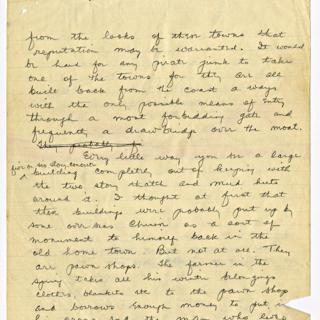 from the looks of their towns that
reputation may be warranted. It would
be hard for any pirate junk to take
one of the towns for they are all
built back from the coast a ways
with the only possible means of entry
through a most forbidding gate and
frequently a draw-bridge over the moat.
They probably
Every little way you see a large
five or six story concrete
building completely out of keeping with
the two story thatch and mud huts
around it. I thought at first that
these buildings were probably put up by
some overseas Chinese as a sort of
monument to himself back in the
old home town. But not at all. They
are pawn shops. The farmer in the
spring takes all his winter belongings
clothes, blankets etc to the pawn shop
and borrows enough money to put in
his and the man who lives